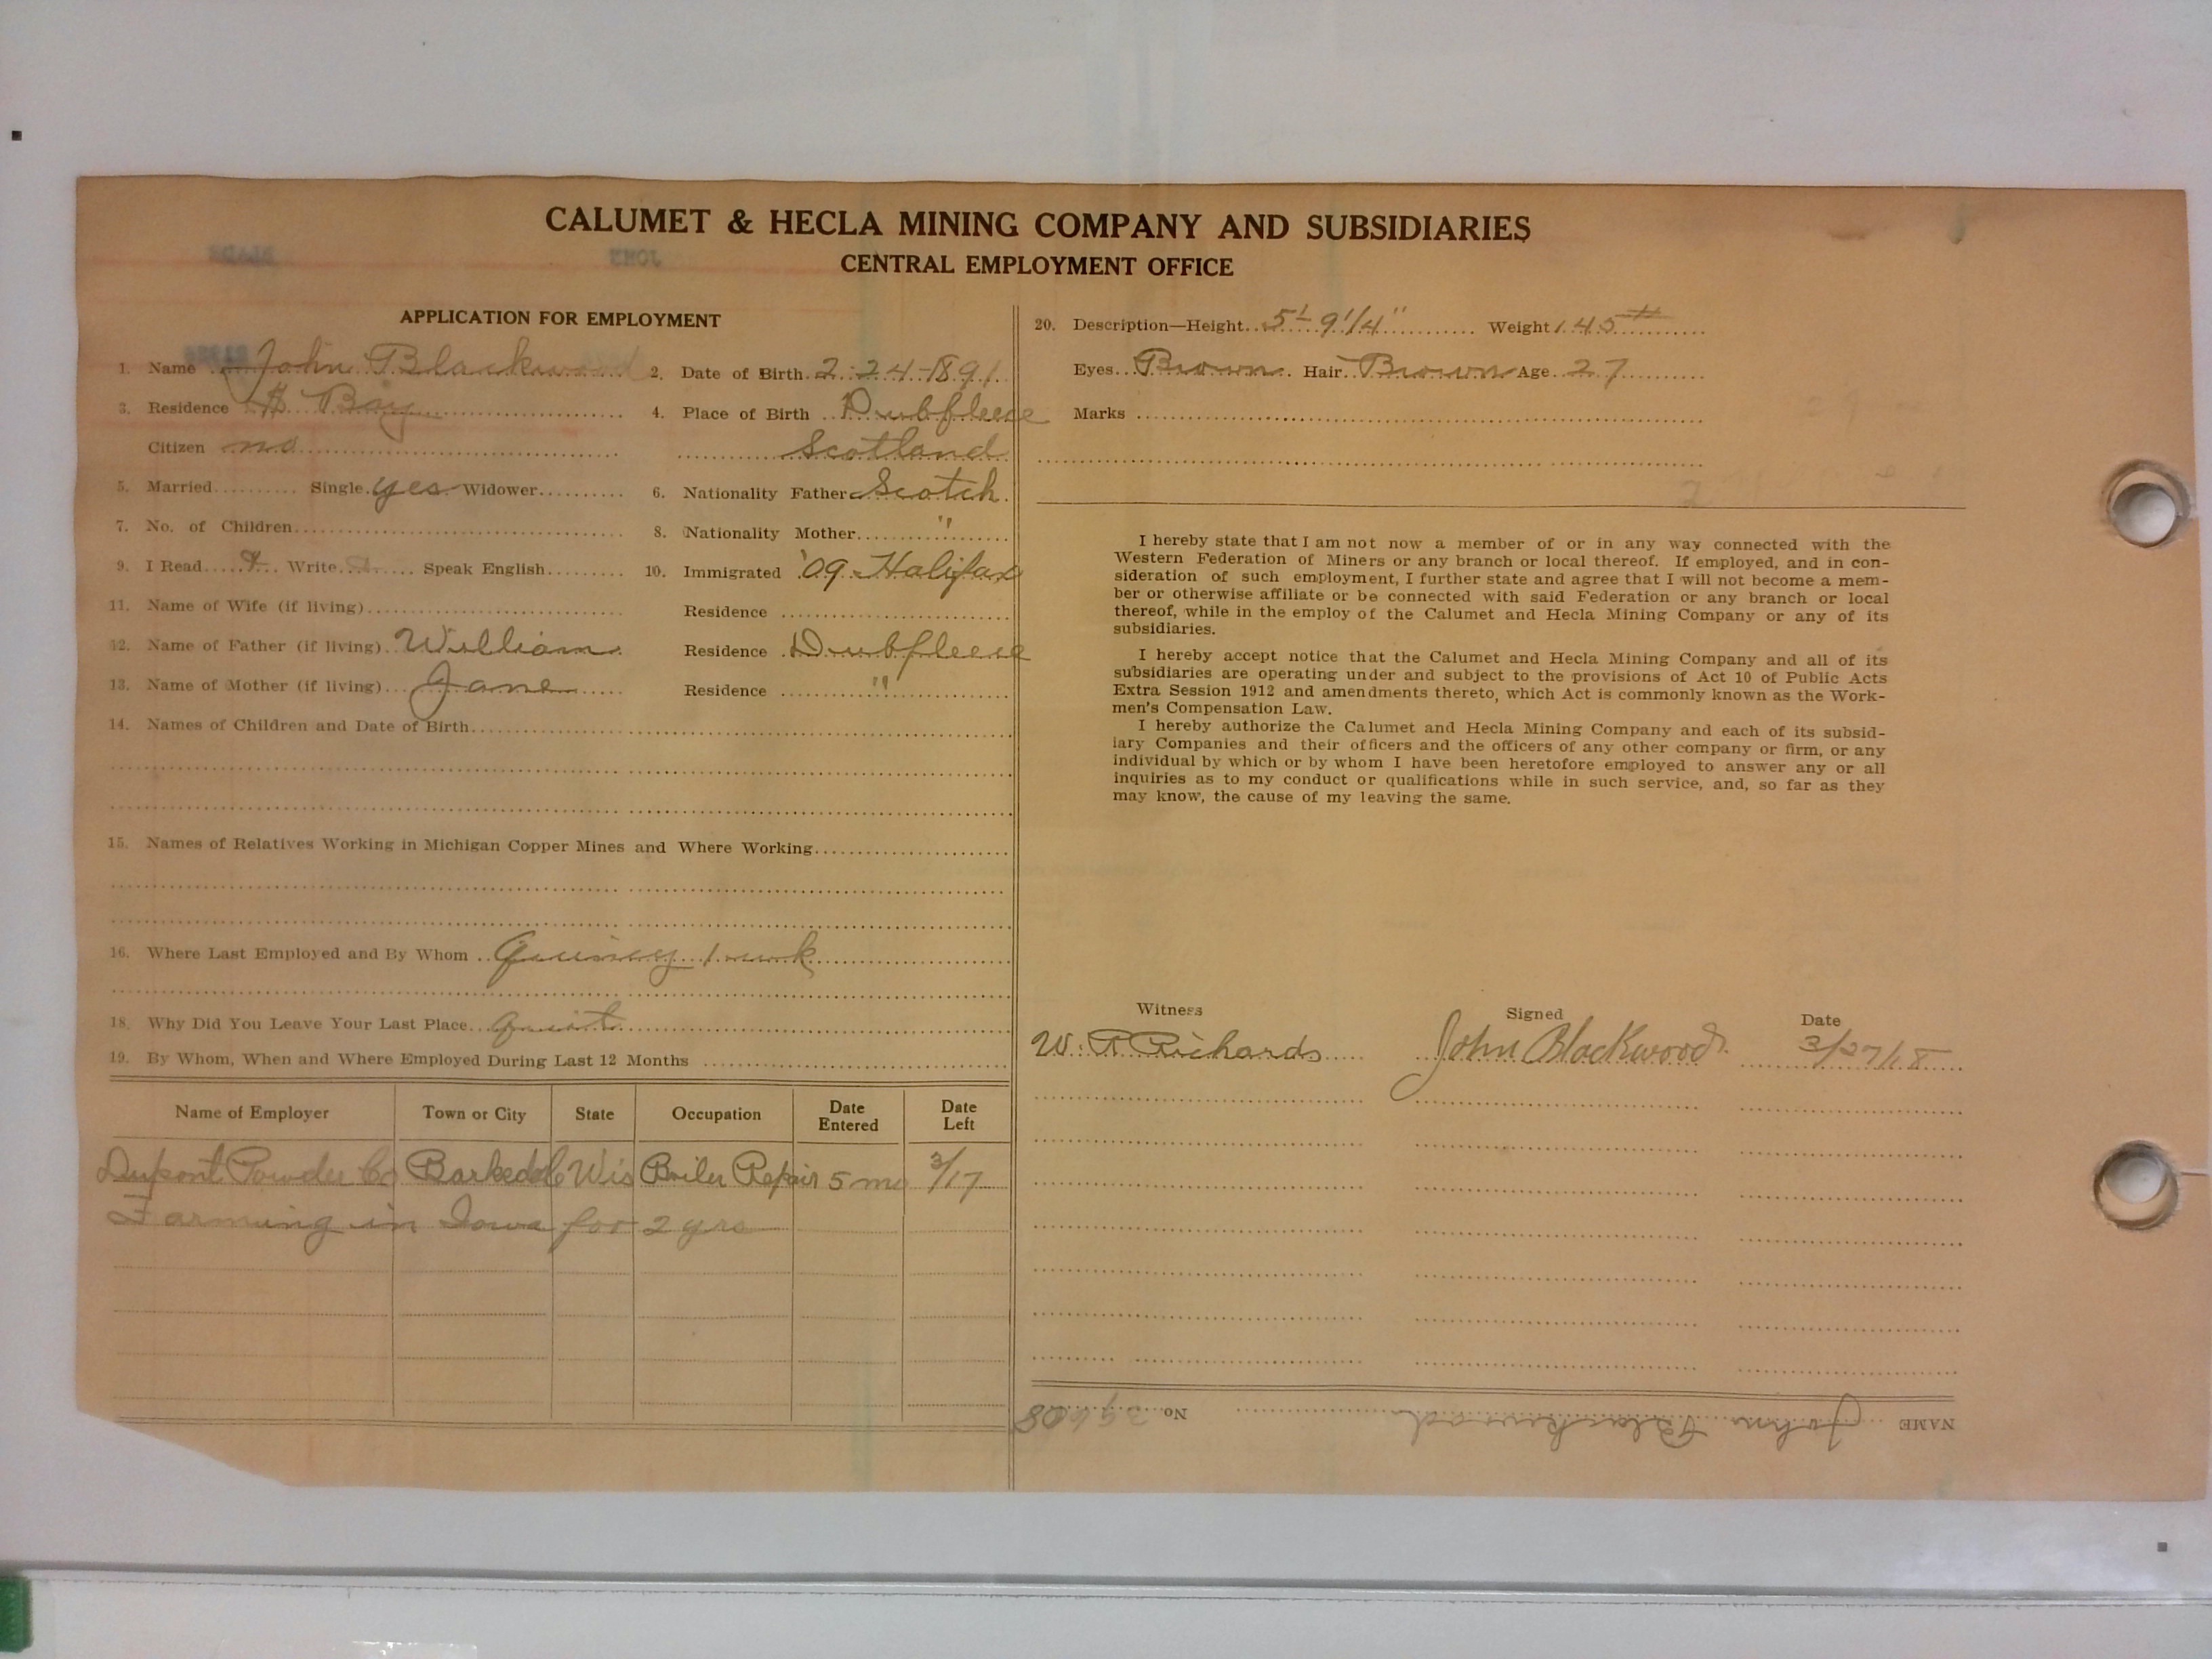 CALUMET & HECLA MINING COMPANY AND SUBSIDIARIES
CENTRAL EMPLOYMENT OFFICE
APPLICATION FOR EMPLOYMENT
1. Name John Blackwood 2. Date of Birth 2-24-1891
3. Residence Bay 4. Place of Birth Dubfleece
Citizen no Scotland
5. Married Single yes Widower 6. Nationality Father Scotch
7. No. of Children 8. Nationality Mother "
9. I Read Write Speak English 10. Immigrated '09 Halifax
11. Name of Wife (if living) Residence
12. Name of Father (if living) William Residence Dubfleece
13. Name of Mother (if living) Jane Residence "
14. Names of Children and Date of Birth
15. Names of Relatives Working in Michigan Copper Mines and Where Working
16. Where Last Employed and By Whom Quincy 1 wk
18. Why Did You Leave Your Last Place Quit
19. By Whom, When and Where Employed During Last 12 Months
Name of Employer Town or City State Occupation Date Entered Date Left
Dupont Powder Co Barkedale Wis Boiler Repair 5 mo 3/17
Farming in Iowa for 2 yrs
20. Description—Height 5' 9 1/4" Weight 145 #
Eyes Brown Hair Brown Age 27
Marks
I hereby state that I am not now a member of or in any way connected with the
Western Federation of Miners or any branch or local thereof. If employed, and in con-
sideration of such employment, I further state and agree that I will not become a mem-
ber or otherwise affiliate or be connected with said Federation or any branch or local
thereof, while in the employ of the Calumet and Hecla Mining Company or any of its
subsidiaries.
I hereby accept notice that the Calumet and Hecla Mining Company and all of its
subsidiaries are operating under and subject to the provisions of Act 10 of Public Acts
Extra Session 1912 and amendments thereto, which Act is commonly known as the Work-
men's Compensation Law.
I hereby authorize the Calumet and Hecla Mining Company and each of its subsid-
iary Companies and their officers and the officers of any other company or firm, or any
individual by which or by whom I have been heretofore employed to answer any or all
inquiries as to my conduct or qualifications while in such service, and, so far as they
may know, the cause of my leaving the same.
Witness Signed Date
W. R Richards John Blackwood 3/27/18
NAME John Blackwood No.